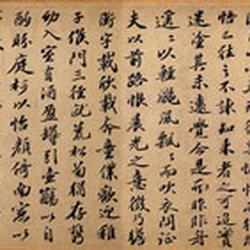 悟已往之不諫知來者之可追實
迷塗其未遠覺今是而昨非舟
遙遙以輕颺風飄飄而吹衣問征
夫以前路恨晨光之熹微乃瞻
衡宇載欣載奔僮僕歡迎稚
子候門三徑就荒松菊猶存携
幼入室有酒盈樽引壺觴以自
酌眄庭柯以怡顏倚南窗以